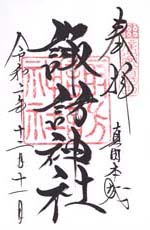 奉拝
真田本城
諏訪神社
令和二年十二月十一日